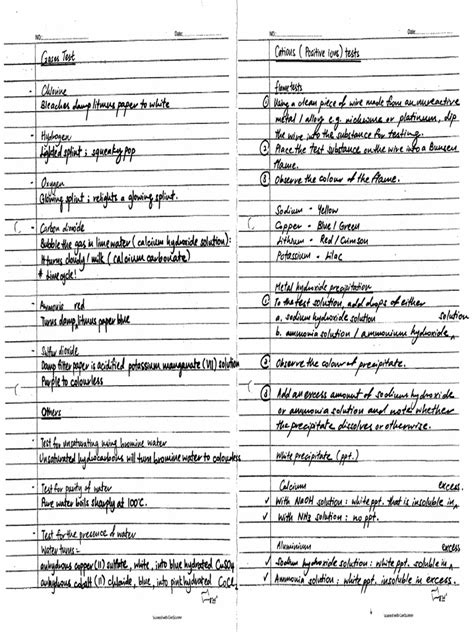 NO.:
Date:
Gases Test
- Chlorine
Bleaches damp litmus paper to white
- Hydrogen
Lighted splint ; squeaky pop
- Oxygen
Glowing splint ; relights a glowing splint.
- Carbon dioxide
Bubble the gas in limewater ( calcium hydroxide solution):
It turns cloudy / milk ( calcium carbonate)
* timecycle!
- Ammonia red
Turns damp litmus paper blue
- Sulfur dioxide
Damp filter paper is acidified potassium manganate (VII) solution
Purple to colourless
Others
- Test for unsaturating using bromine water
Unsaturated hydrocarbons will turn bromine water to colourless
- Test for purity of water
Pure water boils sharply at 100°C.
- Test for the presence of water
Water turns-
anhydrous copper (II) sulfate, white, into blue hydrated CuSO4
anhydrous cobalt (II) chloride, blue, into pink hydrated CoCl2
Scanned with CamScanner
NO.:
Date:
Cations ( Positive ions) tests
flame tests
① Using a clean piece of wire made from an unreactive
metal / alloy e.g. nichrome or platinum, dip
the wire into the substance for testing.
② Place the test substance on the wire into a Bunsen
flame.
③ Observe the colour of the flame.
Sodium - Yellow
Copper - Blue / Green
Lithium - Red / Crimson
Potassium - Lilac
Metal hydroxide precipitation
① To the test solution, add drops of either
a. sodium hydroxide solution solution
b. ammonia solution / ammonium hydroxide ^
② Observe the colour of precipitate.
③ Add an excess amount of sodium hydroxide
or ammonia solution and note whether
the precipitate dissolves or otherwise.
White precipitate (ppt.)
Calcium excess.
✓ With NaOH solution : white ppt. that is insoluble in ^
✓ With NH3 solution : no ppt.
Aluminium excess
✓ Sodium hydroxide solution : white ppt. soluble in ^
✓ Ammonia solution : white ppt. insoluble in excess.
Scanned with CamScanner